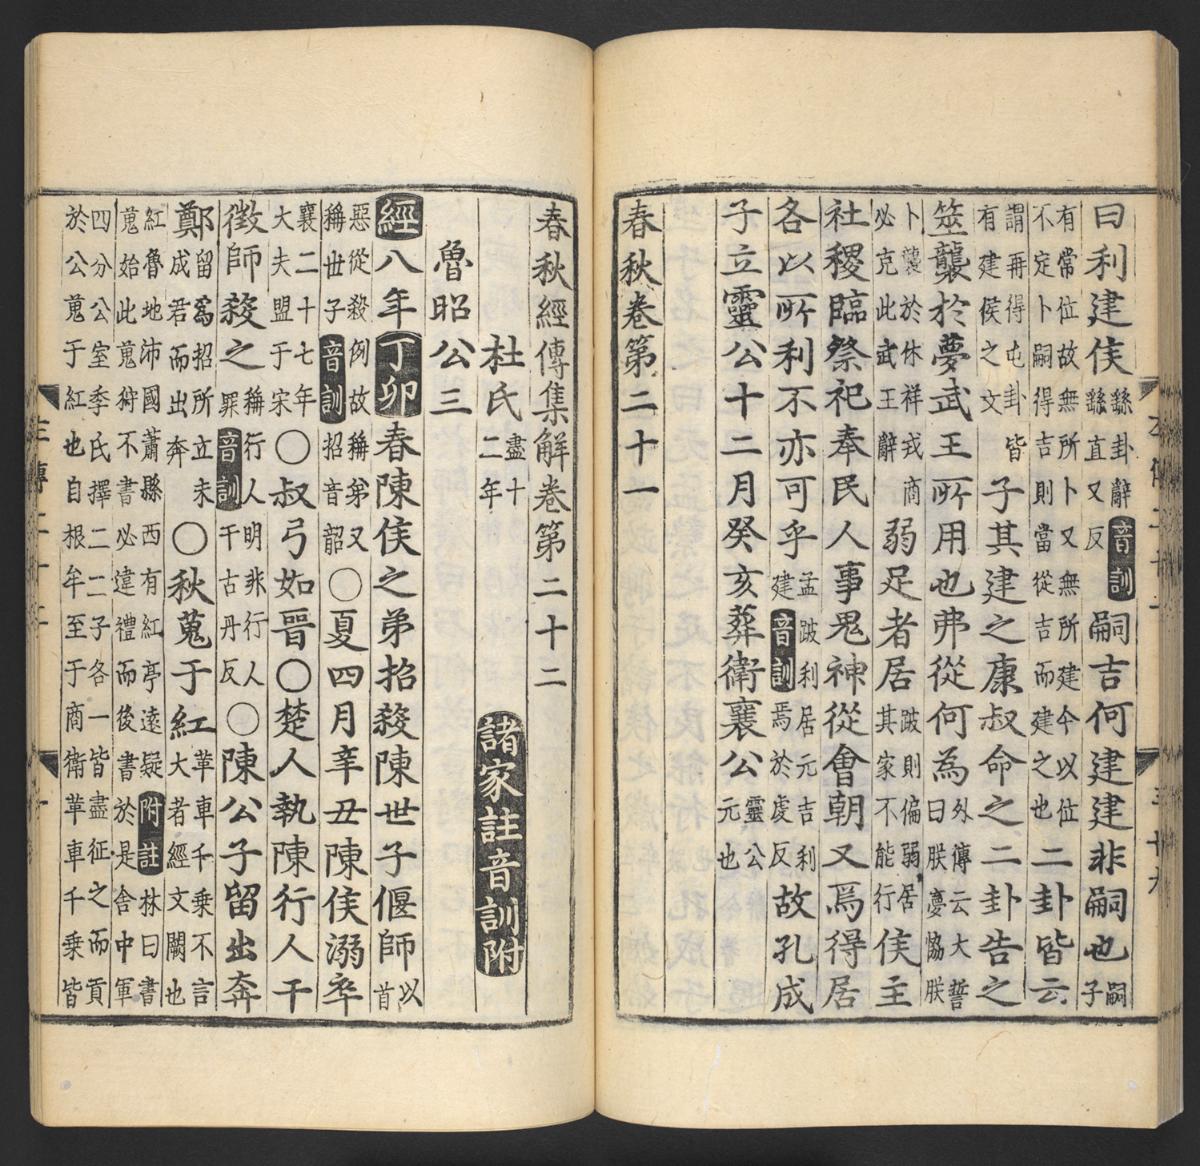 曰利建侯繇卦辭音訓繇直又反嗣吉何建建非嗣也嗣子
有常位故無所卜又無所建今以位不定卜嗣得吉則當從吉而建之也二卦皆云
謂再得屯卦皆有建侯之文子其建之康叔命之二卦告之
筮襲於夢武王所用也弗從何為外傳云大誓曰朕夢協朕
卜襲於休祥戎商必克此武王辭弱足者居跛則偏弱居其家不能行侯主
社稷臨祭祀奉民人事鬼神從會朝又焉得居
各以所利不亦可乎孟跛利居元吉利建音訓焉於虔反故孔成
子立靈公十二月癸亥葬衛襄公靈公元也
春秋卷第二十一
春秋經傳集解卷第二十二
杜氏盡十二年 諸家註音訓附
魯昭公三
經八年丁卯春陳侯之弟招殺陳世子偃師以首
惡從殺例故稱弟又稱世子音訓招音韶○夏四月辛丑陳侯溺卒
襄二十七年大夫盟于宋○叔弓如晉○楚人執陳行人干
徵師殺之稱行人明非行人罪音訓干古丹反○陳公子留出奔
鄭留為招所立未成君而出奔○秋蒐于紅革車千乘不言大者經文闕也
紅魯地沛國蕭縣西有紅亭遠疑附註林曰書蒐始此蒐狩不書必違禮而後書於是舍中軍
四分公室季氏擇二二子各一皆盡征之而貢於公蒐于紅也自根牟至于商衛革車千乘皆